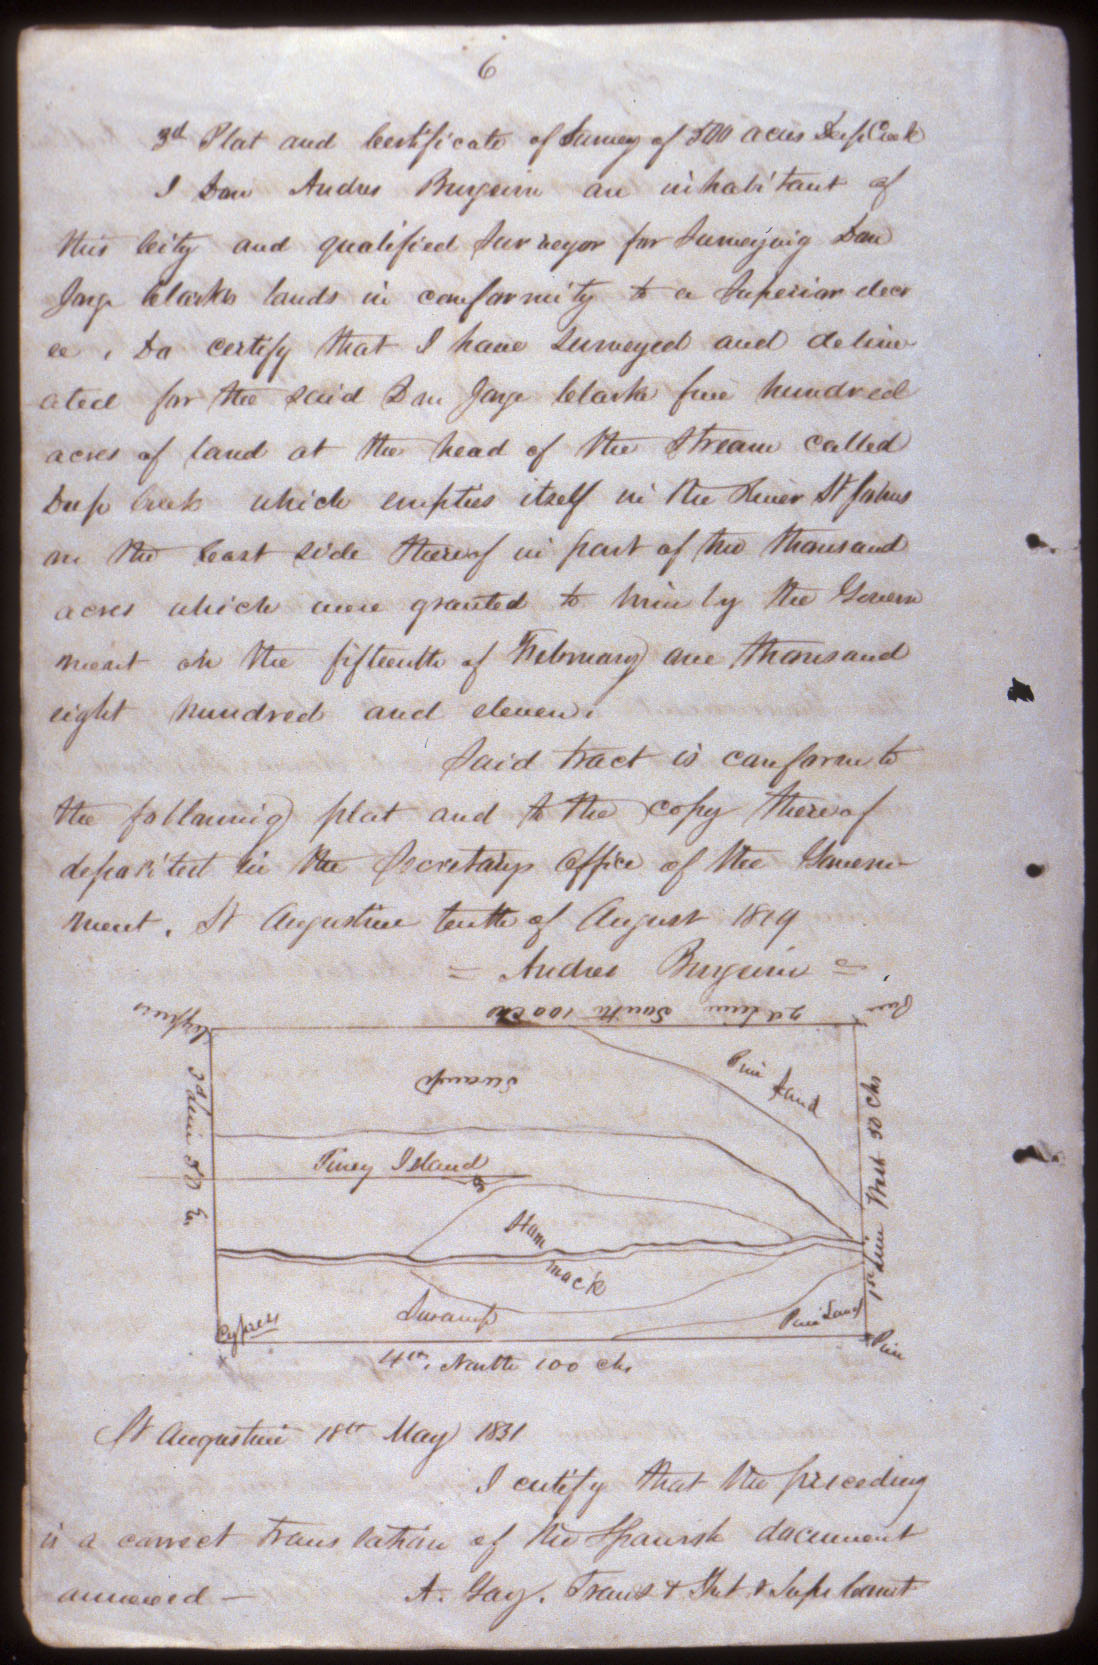 6
3d Plat and Certificate of Survey of 500 acres Deep Creek
I Don Andres Burgevin an inhabitant of
this City and qualified Surveyor for Surveying Don
Jorge Clarks lands in conformity to a Superior decr
ee, Do certify that I have Surveyed and deline
ated for the said Don Jorge Clarke five hundred
acres of land at the head of the Stream called
Deep Creek which empties itself in the River St Johns
on the East side thereof in part of two thousand
acres which were granted to him by the Govern
ment on the fifteenth of February one thousand
eight hundred and eleven.
Said tract is conform to
the following plat and to the copy thereof
deposited in the Secretarys Office of the Govern-
ment. St Augustine tenth of August 1819
= Andres Burgevin =
Cypress
2d Line South 100 Chs
Pine
3d Line 50 Ch
Swamp
Pine Land
1st Line West 50 Chs
Piney Island
Ham
mock
Swamp
Pine Land
Cypress
Pine
4th. North 100 chs
St Augustine 18th May 1831
I certify that the preceding
is a correct translation of the Spanish document
annexed — A. Gay. Trans &